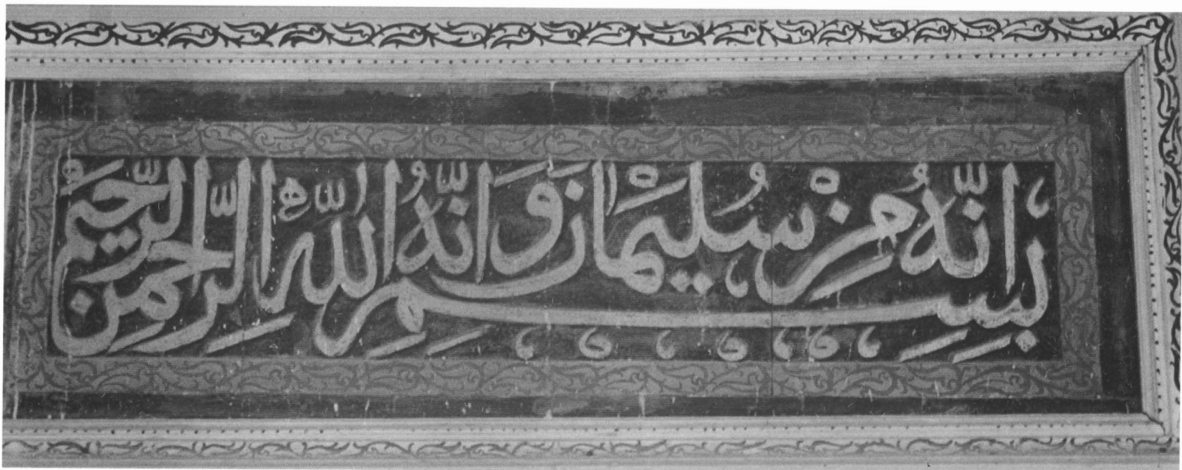 اِنَّهُ مِنْ سُلَيْمَانَ وَاِنَّهُ بِسْمِ اللّٰهِ الرَّحْمٰنِ الرَّحِيمِ